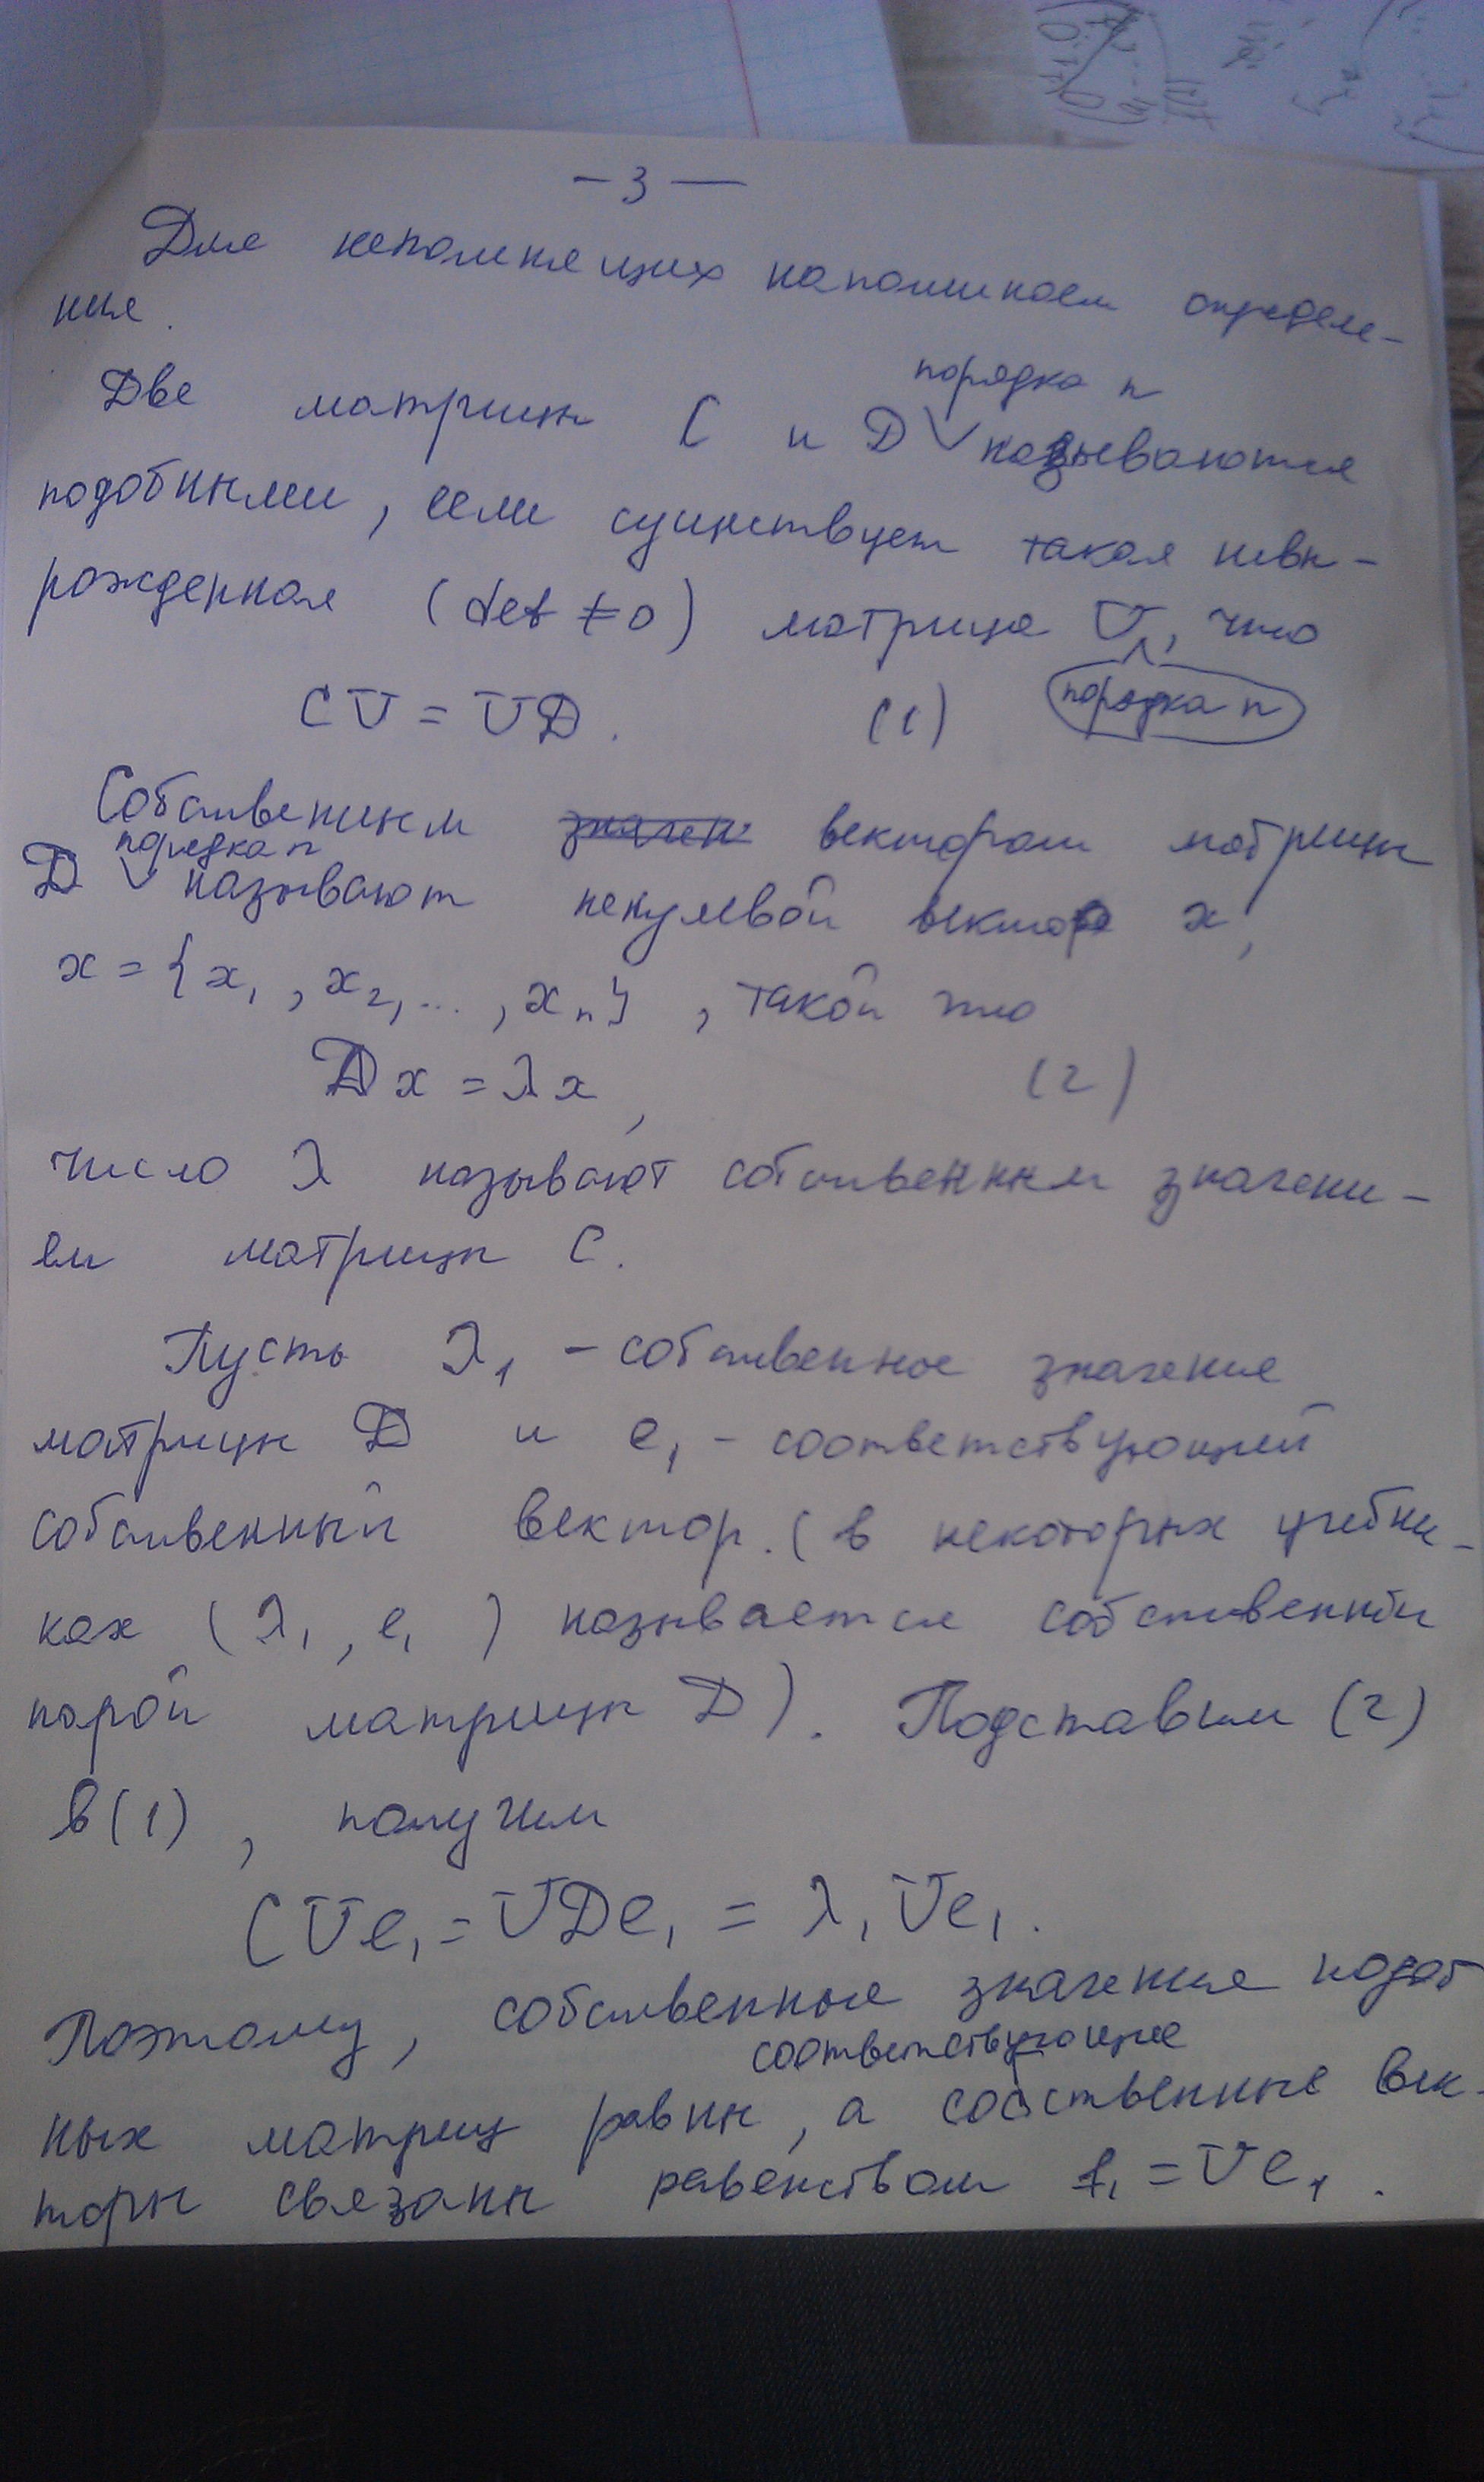 — 3 —
Для непомнящих напоминаем определе-
ния.
порядка n
Две матрицы C и D называются
подобными, если существует такая невы-
рожденная (det ≠ 0) матрица U, что
порядка n
CU = UD. (1)
Собственным значен вектором матрицы
порядка n
D называют ненулевой вектор x,
x = {x₁, x₂, ..., xₙ}, такой что
Dx = λx, (2)
число λ называют собственным значени-
ем матрицы C.
Пусть λ₁ - собственное значение
матрицы D и e₁ - соответствующий
собственный вектор. (в некоторых учебни-
ках (λ₁, e₁) называется собственной
парой матрицы D). Подставим (2)
в (1), получим
CUe₁ = UDe₁ = λ₁Ue₁.
Поэтому, собственные значения подоб
соответствующие
ных матриц равны, а собственные век-
торы связаны равенством f₁ = Ue₁.